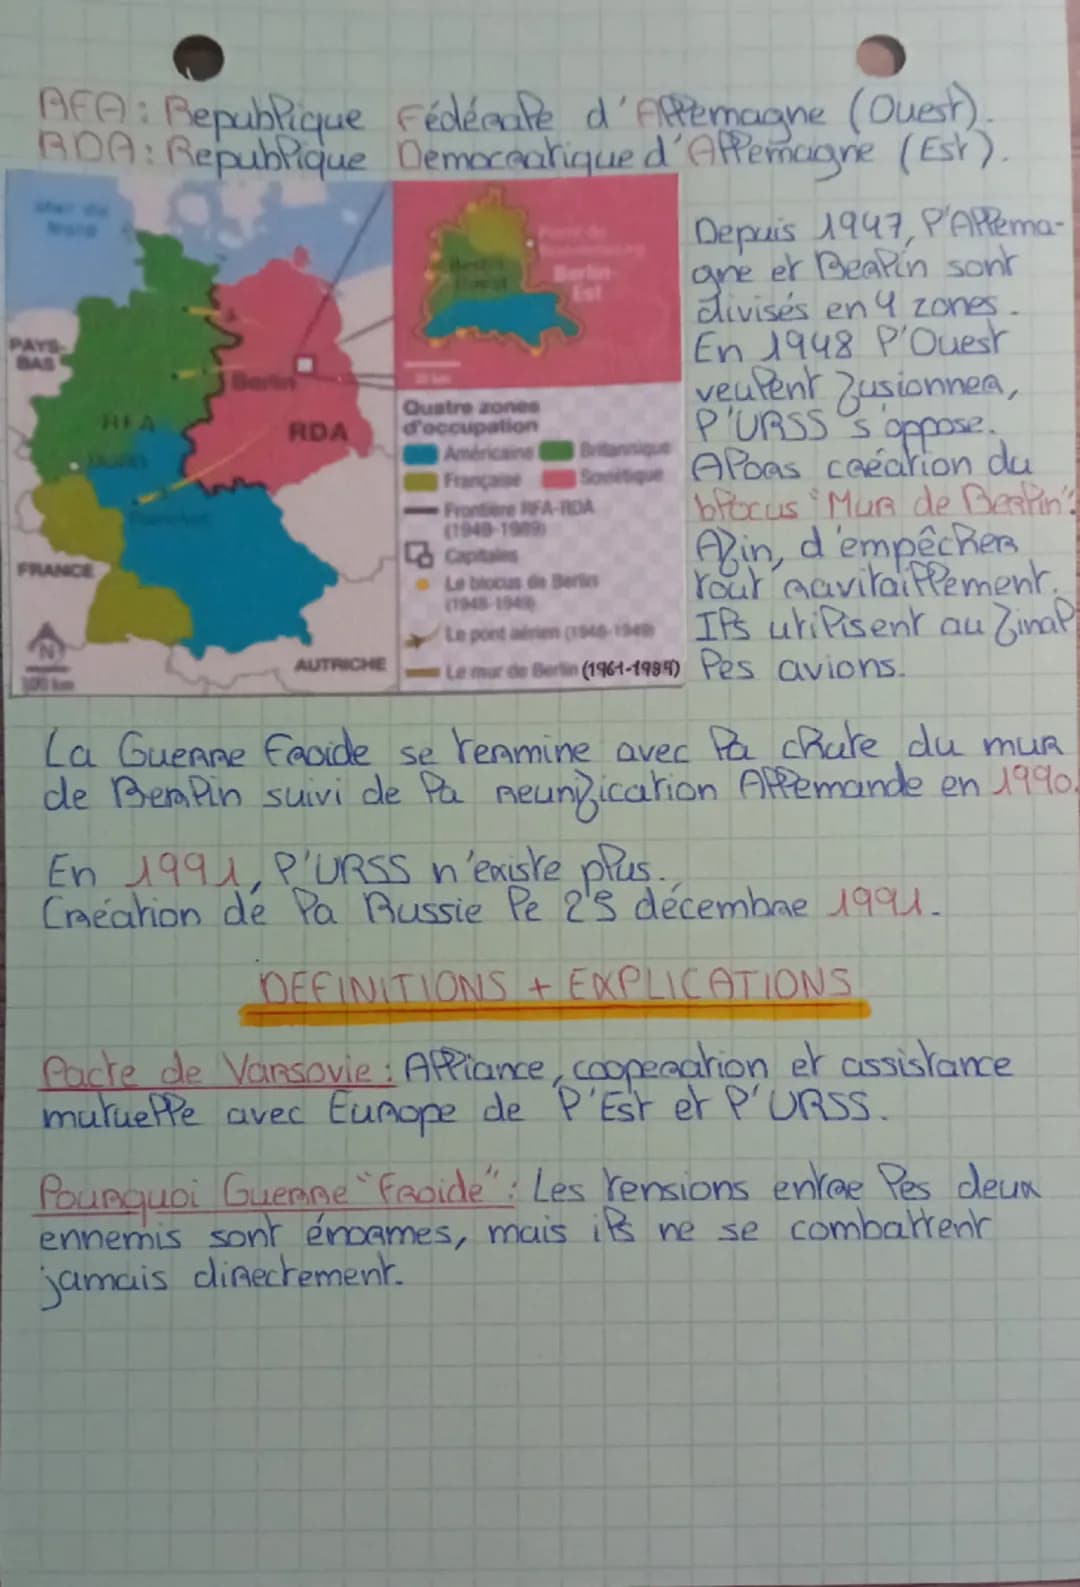 RFA: Republique Fédérale d'Allemagne (Ouest).
RDA: Republique Democratique d'Allemagne (Est).
Mer du
Nord
PAYS-
BAS
RFA
Berlin
RDA
FRANCE
AUTRICHE
N
100 km
Berlin-
Ouest
Berlin-
Est
Quatre zones
d'occupation
Américaine
Britannique
Française
Soviétique
Frontière RFA-RDA
(1949-1989)
Capitales
Le blocus de Berlin
(1948-1949)
Le pont aérien (1948-1949)
Le mur de Berlin (1961-1989)
Depuis 1947, l'Allema-
gne et Berlin sont
divisés en 4 zones.
En 1948 l'Ouest
veulent fusionner,
l'URSS s'oppose.
Alors création du
blocus "Mur de Berlin".
Afin, d'empêcher
tout ravitaillement.
Ils utilisent au final
les avions.
La Guerre Froide se termine avec la chute du mur
de Berlin suivi de la reunification Allemande en 1990.
En 1991, l'URSS n'existe plus.
Création de la Russie le 25 décembre 1991.
DEFINITIONS + EXPLICATIONS
Pacte de Varsovie : Alliance, cooperation et assistance
mutuelle avec Europe de l'Est et l'URSS.
Pourquoi Guerre "Froide" : Les tensions entre les deux
ennemis sont énormes, mais ils ne se combattent
jamais directement.